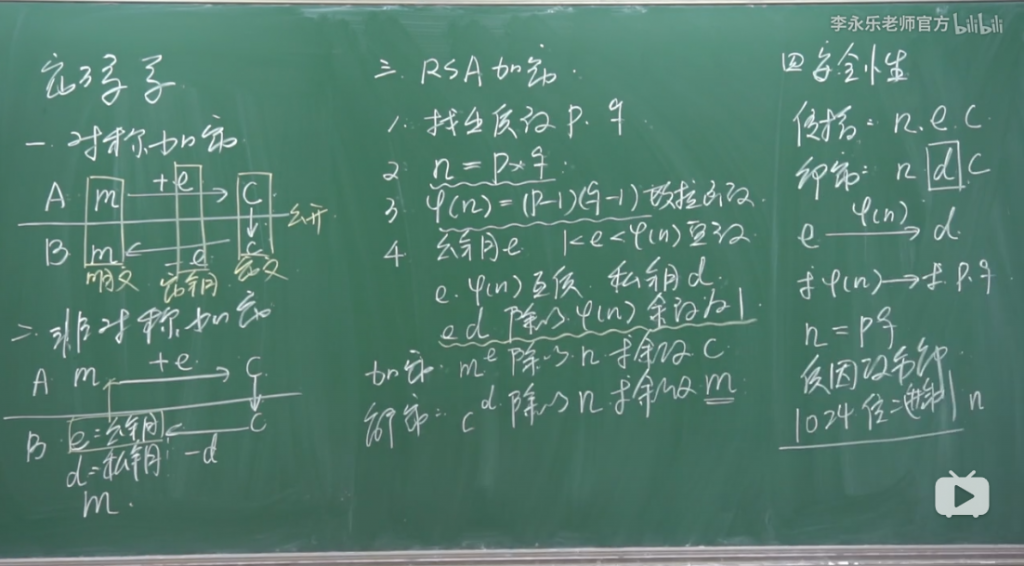 李永乐老师官方 bilibili
密码学
一 对称加密
A m +e C
公开
B m e C
明文 密钥 密文
二 非对称加密
A m +e C
B e=公钥 C
d=私钥 -d
m.
三 RSA加密.
1. 找出质数 P. q
2 n=P×q.
3 φ(n)=(P-1)(q-1) 欧拉函数
4 公钥e 1<e<φ(n) 互质
e. φ(n)互质. 私钥d.
ed 除以φ(n) 余数为1
加密: m^e 除以 n 求余数 C
解密: c^d 除以 n 求余数 m
四 安全性
传播: n. e. C
解密: n d C
e φ(n)→ d.
求φ(n)→求P.q
n=Pq
质因数分解
1024位二进制 n